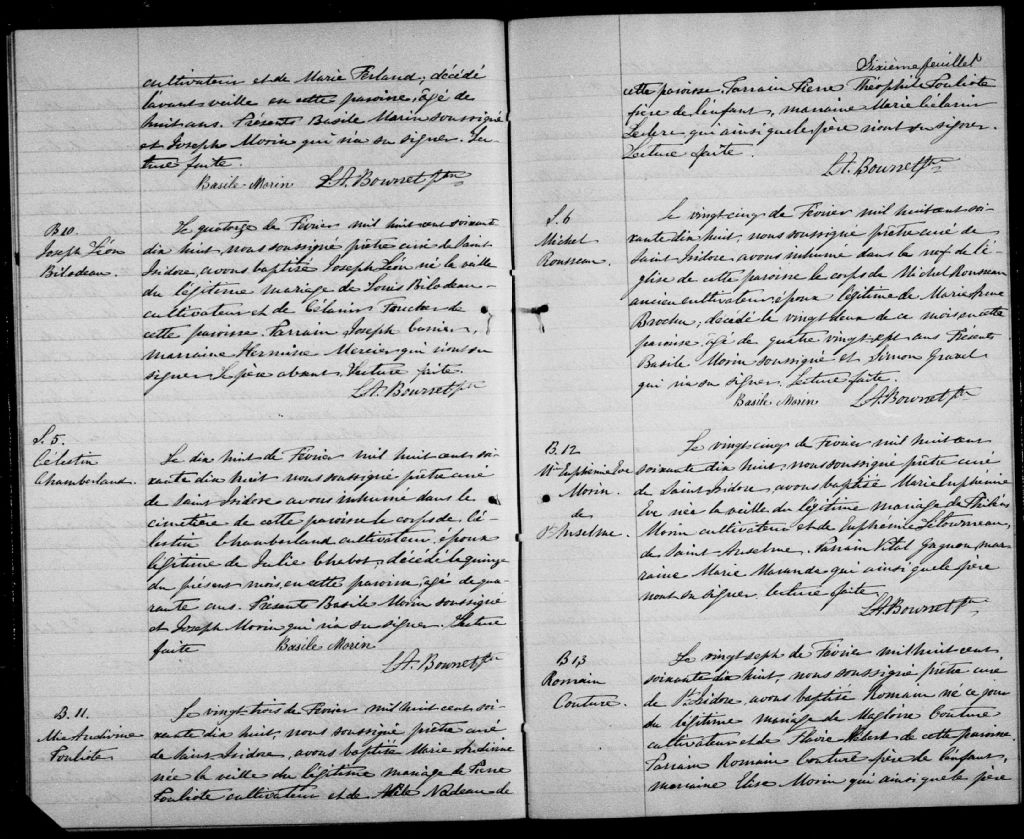 cultivateur et de Marie Ferland; décédé
l'avant veille en cette paroisse, âgé de
huit ans. Présents Basile Morin soussigné
et Joseph Morin qui n'a su signer. Lec-
ture faite.
Basile Morin L.A. Bournet ptre
B 10.
Joseph Léon
Bilodeau.
Le quatorze de Février mil huit cent soixante
dix huit, nous soussigné prêtre curé de Saint
Isidore, avons baptisé Joseph Léon né la veille
du légitime mariage de Louis Bilodeau
cultivateur et de Célanire Foucher de
cette paroisse. Parrain Joseph
marraine Hermine Mercier qui n'ont su
signer le père absent. Lecture faite.
L.A. Bournet ptre
S. 5.
Célestin
Chamberland.
Le dix huit de Février mil huit cent soi-
xante dix huit nous soussigné prêtre curé
de Saint Isidore avons inhumé dans le
cimetière de cette paroisse le corps de Cé-
lestin Chamberland cultivateur, époux
légitime de Julie Chabot, décédé le quinze
du présent mois, en cette paroisse, âgé de qua-
rante ans. Présents Basile Morin soussigné
et Joseph Morin qui n'a su signer. Lecture
faite Basile Morin
L.A. Bournet ptre
B. 11.
Mie Audivine
Pouliote
Le vingt trois de Février mil huit cent soi-
xante dix huit, nous soussigné prêtre curé
de Saint Isidore, avons baptisé Marie Audivine
née la veille du légitime mariage de Pierre
Pouliote cultivateur et de Nadeau de
Sixième feuillet
cette paroisse. Parrain Pierre Théophile Pouliote
frère de l'enfant, marraine Marie Célanire
Leclerc qui ainsi que le père n'ont su signer.
Lecture faite.
L.A. Bournet ptre
S. 6
Michel
Rousseau.
Le vingt cinq de Février mil huit cent soi-
xante dix huit, nous soussigné prêtre curé de
Saint Isidore avons inhumé dans la nef de l'é-
glise de cette paroisse le corps de Michel Rousseau
ancien cultivateur, époux légitime de Marie
Brochu, décédé le vingt deux de ce mois en cette
paroisse, âgé de quatre vingt sept ans. Présents
Basile Morin soussigné et Simon Gravel
qui n'a su signer. Lecture faite.
Basile Morin L.A. Bournet ptre
B. 12
Me Euphémie Eve
Morin.
de
St Anselme.
Le vingt cinq de Février mil huit cent
soixante dix huit, nous soussigné prêtre curé
de Saint Isidore, avons baptisé Marie Euphémie
Eve née la veille du légitime mariage de
Morin cultivateur et de Euphémie Létourneau,
de Saint Anselme. Parrain Vital Gagnon, mar-
raine Marie Maranda qui ainsi que le père
n'ont su signer. Lecture faite
L.A. Bournet ptre
B 13
Romain
Couture.
Le vingt sept de Février mil huit cent
soixante dix huit, nous soussigné prêtre curé
de St Isidore, avons baptisé Romain né ce jour
du légitime mariage de Magloire Couture
cultivateur et de Flavie Hébert de cette paroisse.
Parrain Romain Couture frère de l'enfant,
marraine Elise Morin qui ainsi que le père